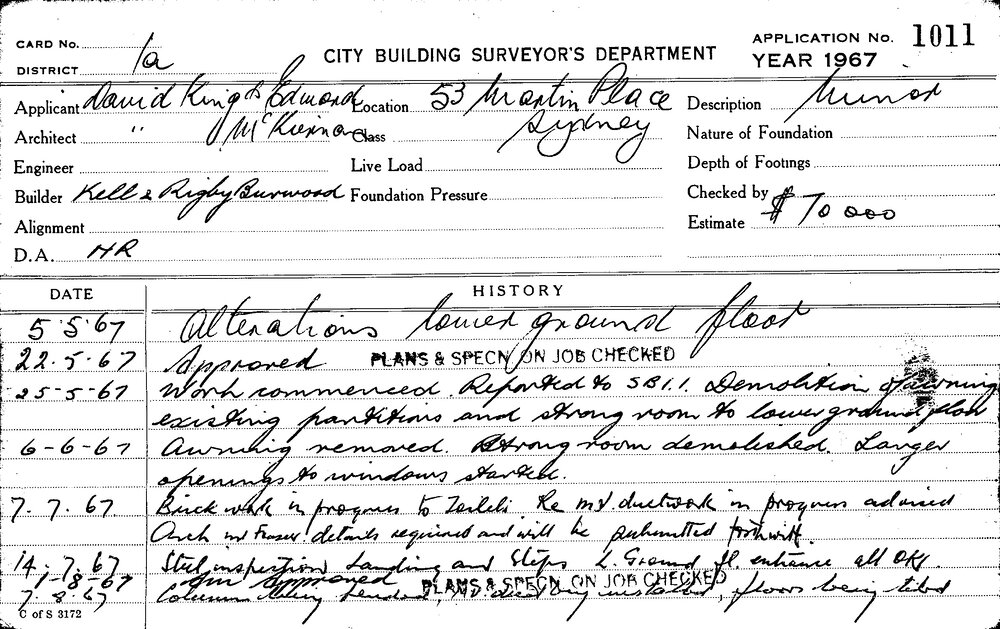 CARD No. 1a
DISTRICT
CITY BUILDING SURVEYOR'S DEPARTMENT
APPLICATION No. 1011
YEAR 1967
Applicant David King & Edmond Location 53 Martin Place Description Minor
Architect " McKiernan Class Sydney Nature of Foundation
Engineer Live Load Depth of Footings
Builder Kell & Rigby Burwood Foundation Pressure Checked by
Alignment Estimate $70 000
D.A. NR
DATE HISTORY
5.5.67 Alterations lower ground floor
22.5.67 Approved PLANS & SPECN ON JOB CHECKED
25-5-67 Work commenced. Reported to SB11. Demolition of awning
existing partitions and strong room to lower ground floor
6-6-67 Awning removed. Strong room demolished. Larger
openings to windows started.
7.7.67 Brick work in progress to Re ductwork in progress advised
Arch details required and will be submitted forthwith.
14.7.67 Steel inspection Landing and Steps L. Ground fl. entrance all OK.
1-8-67 approved PLANS & SPECN ON JOB CHECKED
7.8.67 Column being installed, floors being tiled
C of S 3172